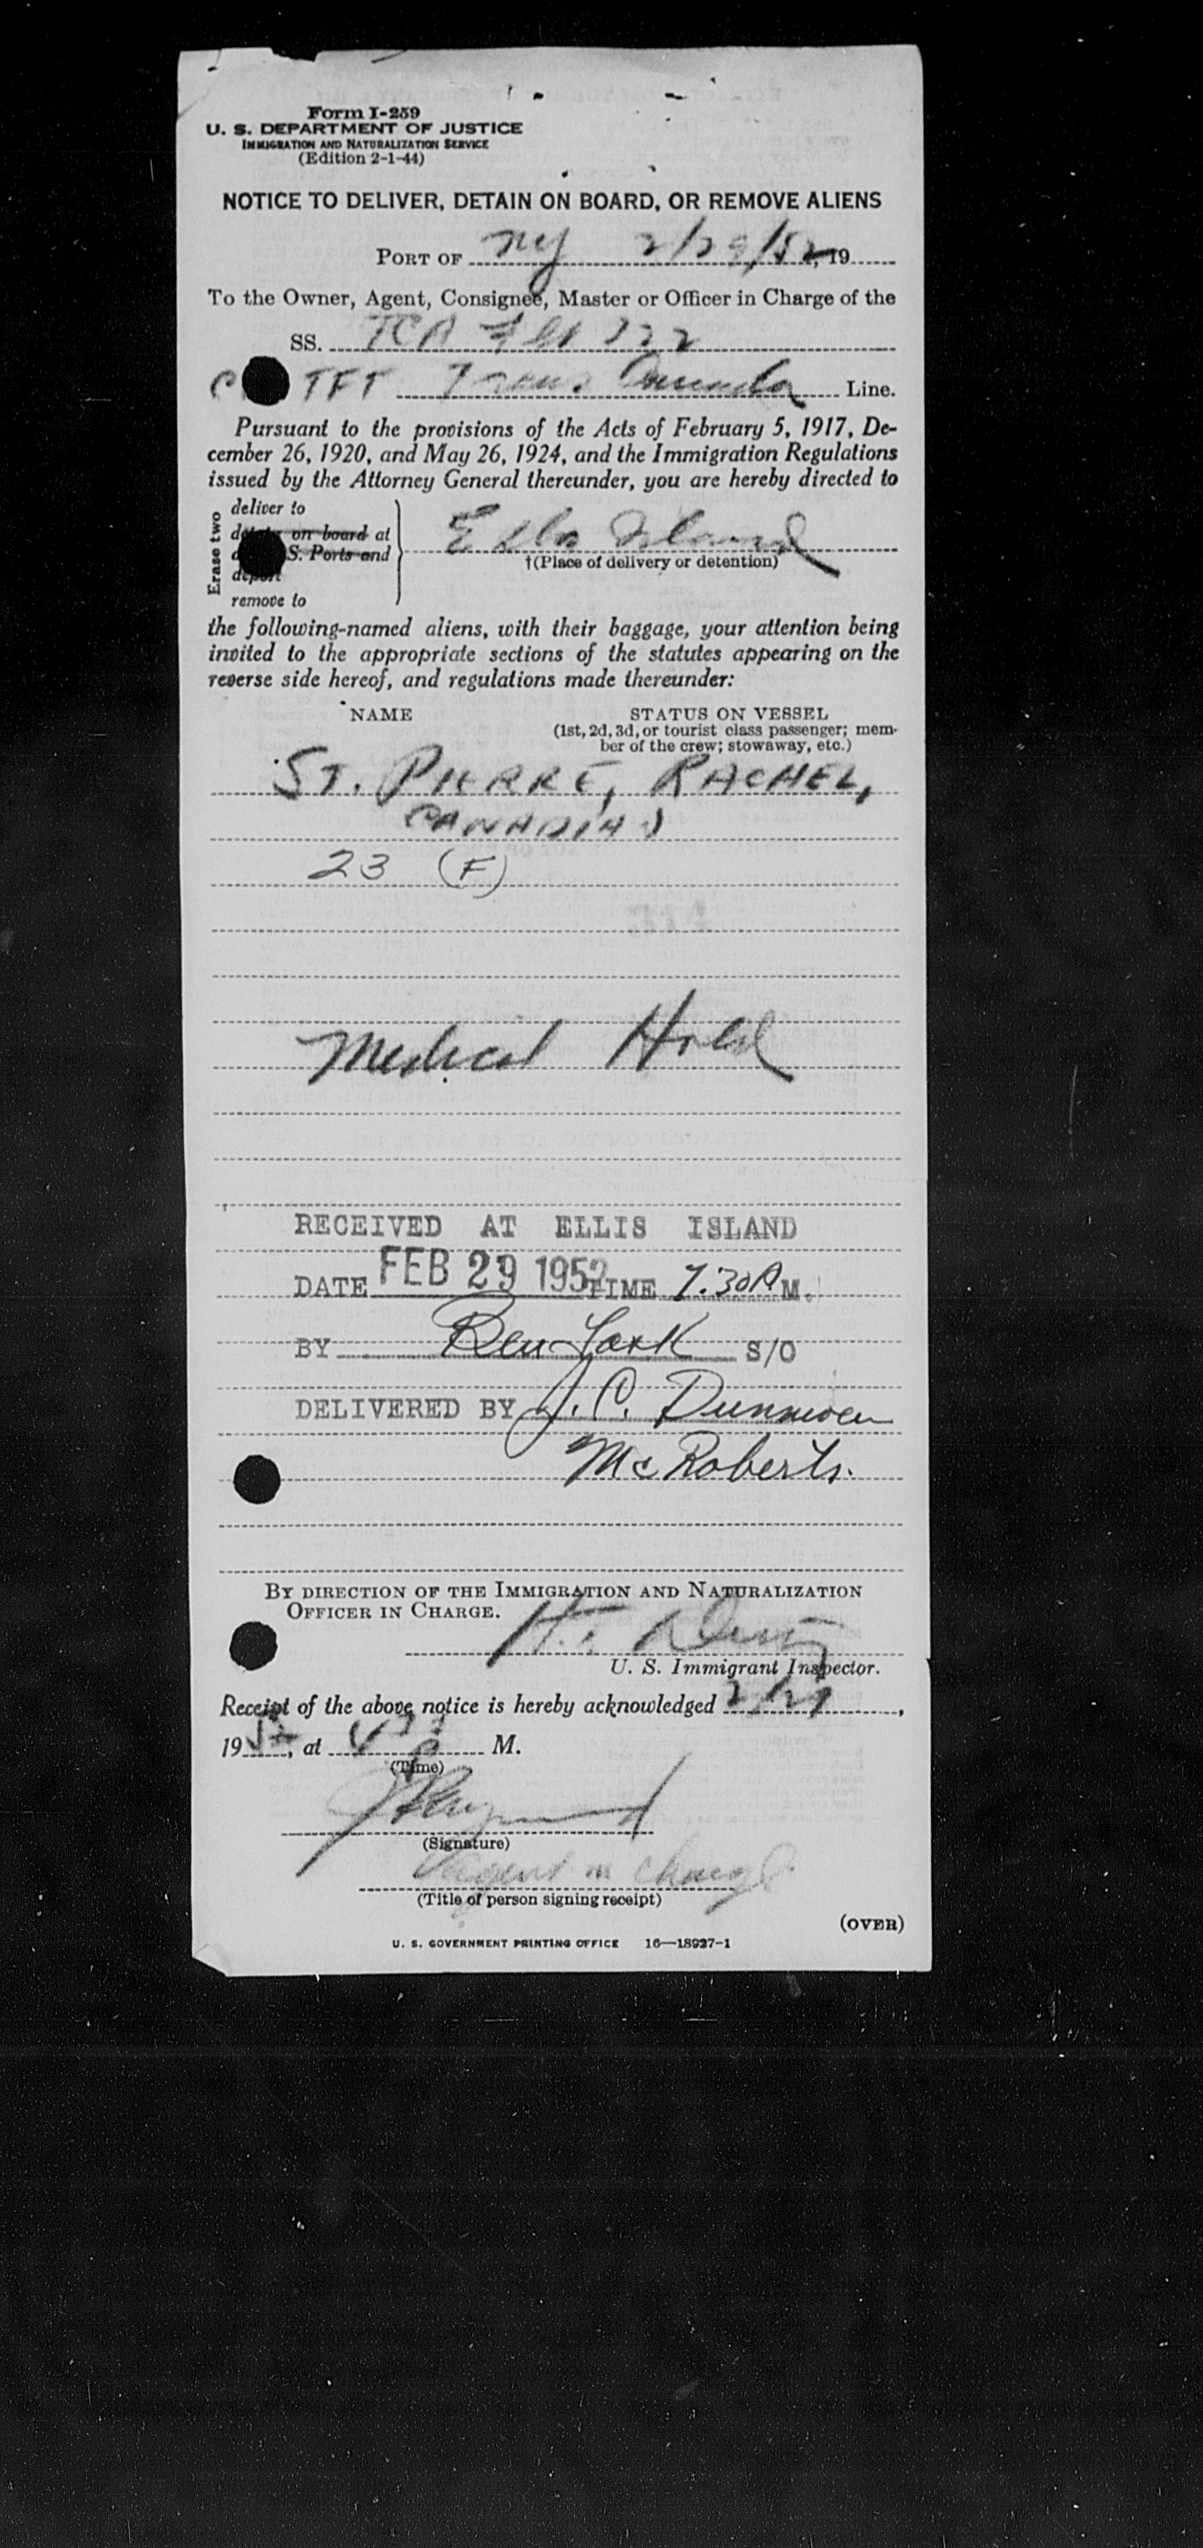 Form I-259
U. S. DEPARTMENT OF JUSTICE
IMMIGRATION AND NATURALIZATION SERVICE
(Edition 2-1-44)
NOTICE TO DELIVER, DETAIN ON BOARD, OR REMOVE ALIENS
PORT OF NY 2/29/52, 19
To the Owner, Agent, Consignee, Master or Officer in Charge of the
SS. TCA Flt 722
TFT Trans Canada Line.
Pursuant to the provisions of the Acts of February 5, 1917, De-
cember 26, 1920, and May 26, 1924, and the Immigration Regulations
issued by the Attorney General thereunder, you are hereby directed to
Erase two
deliver to
detain on board at
S. Ports and
deport
remove to
Ellis Island
†(Place of delivery or detention)
the following-named aliens, with their baggage, your attention being
invited to the appropriate sections of the statutes appearing on the
reverse side hereof, and regulations made thereunder:
NAME STATUS ON VESSEL
(1st, 2d, 3d, or tourist class passenger; mem-
ber of the crew; stowaway, etc.)
ST. PIERRE, RACHEL,
CANADIAN
23 (F)
Medical Hold
RECEIVED AT ELLIS ISLAND
DATE FEB 29 1952 TIME 7.30 A M.
BY Ben York S/O
DELIVERED BY J. C.
McRoberts.
BY DIRECTION OF THE IMMIGRATION AND NATURALIZATION
OFFICER IN CHARGE.
H.
U. S. Immigrant Inspector.
Receipt of the above notice is hereby acknowledged 2/29,
1952, at M.
(Time)
(Signature)
Agent in Charge
(Title of person signing receipt)
(OVER)
U. S. GOVERNMENT PRINTING OFFICE 16—18927-1